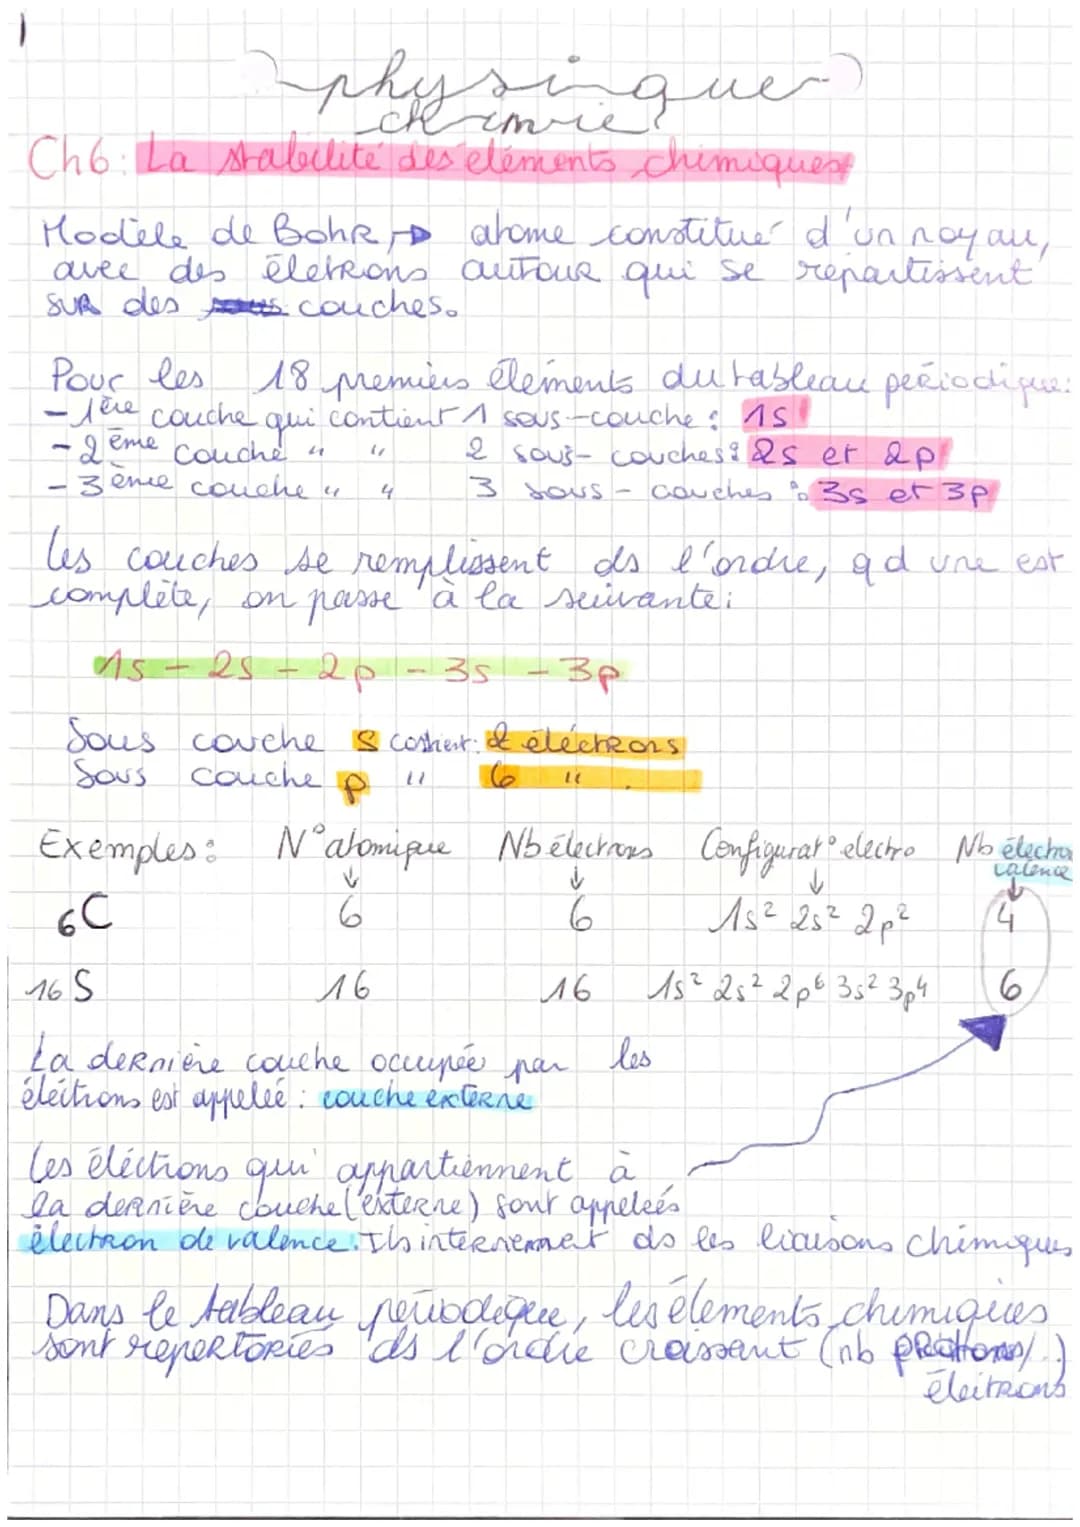 1
physique
chimie
Ch6: La stabilité des éléments chimiques
Modèle de Bohr → atome constitué d'un noyau,
avec des életrons autour qui se répartissent
sur des couches.
Pour les 18 premiers éléments du tableau périodique:
- 1ère couche qui contient 1 sous-couche : 1s
- 2ème couche " " 2 sous-couches : 2s et 2p
- 3ème couche " " 3 sous-couches : 3s et 3p
les couches se remplissent ds l'ordre, qd une est
complète, on passe à la suivante:
1s - 2s - 2p - 3s - 3p
Sous couche s contient: 2 électrons
Sous couche p " 6 " .
Exemples: N° atomique Nb électrons Configurat° électro Nb électro
valence
↓ ↓ ↓ ↓
6C 6 6 1s² 2s² 2p² 4
16S 16 16 1s² 2s² 2p⁶ 3s² 3p⁴ 6
La dernière couche occupée par les
éléctrons est appelée : couche externe
Les éléctrons qui appartiennent à
la dernière couche (externe) sont appelées
électron de valence. Ils interviennent ds les liaisons chimiques
Dans le tableau périodique, les éléments chimiques
sont repertoriés ds l'ordre croissant (nb protons/..)
éléctrons